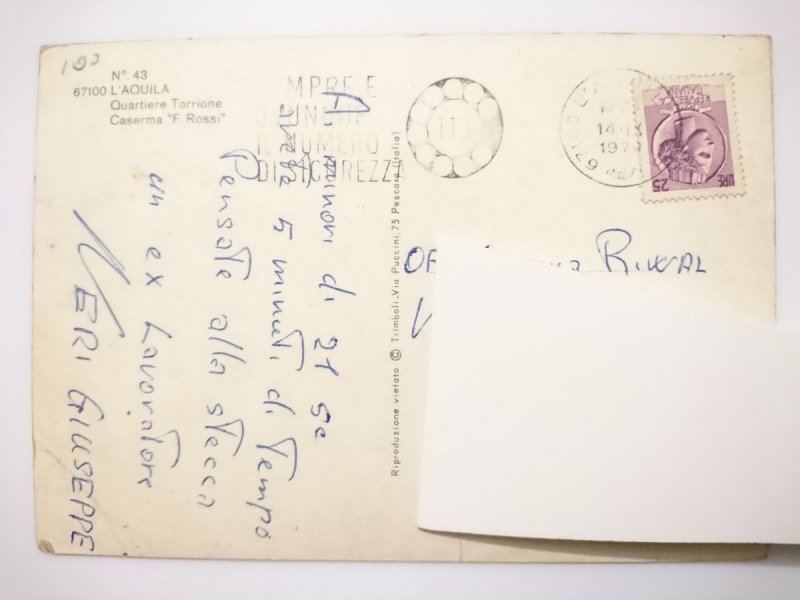 100
N°. 43
67100 L'AQUILA
Quartiere Torrione
Caserma "F. Rossi"
MPRE E
UNQUE
IL NUMERO
DI SICUREZZA
113
14-IX
1979
REPUBBLICA
ITALIANA
LIRE 25
A minori di 21 se
avete 5 minuti di tempo
Pensate alla stecca
un ex Lavoratore
NERI GIUSEPPE
Riproduzione vietata © Trimboli - Via Puccini, 75 Pescara (Italia)
RIWAL